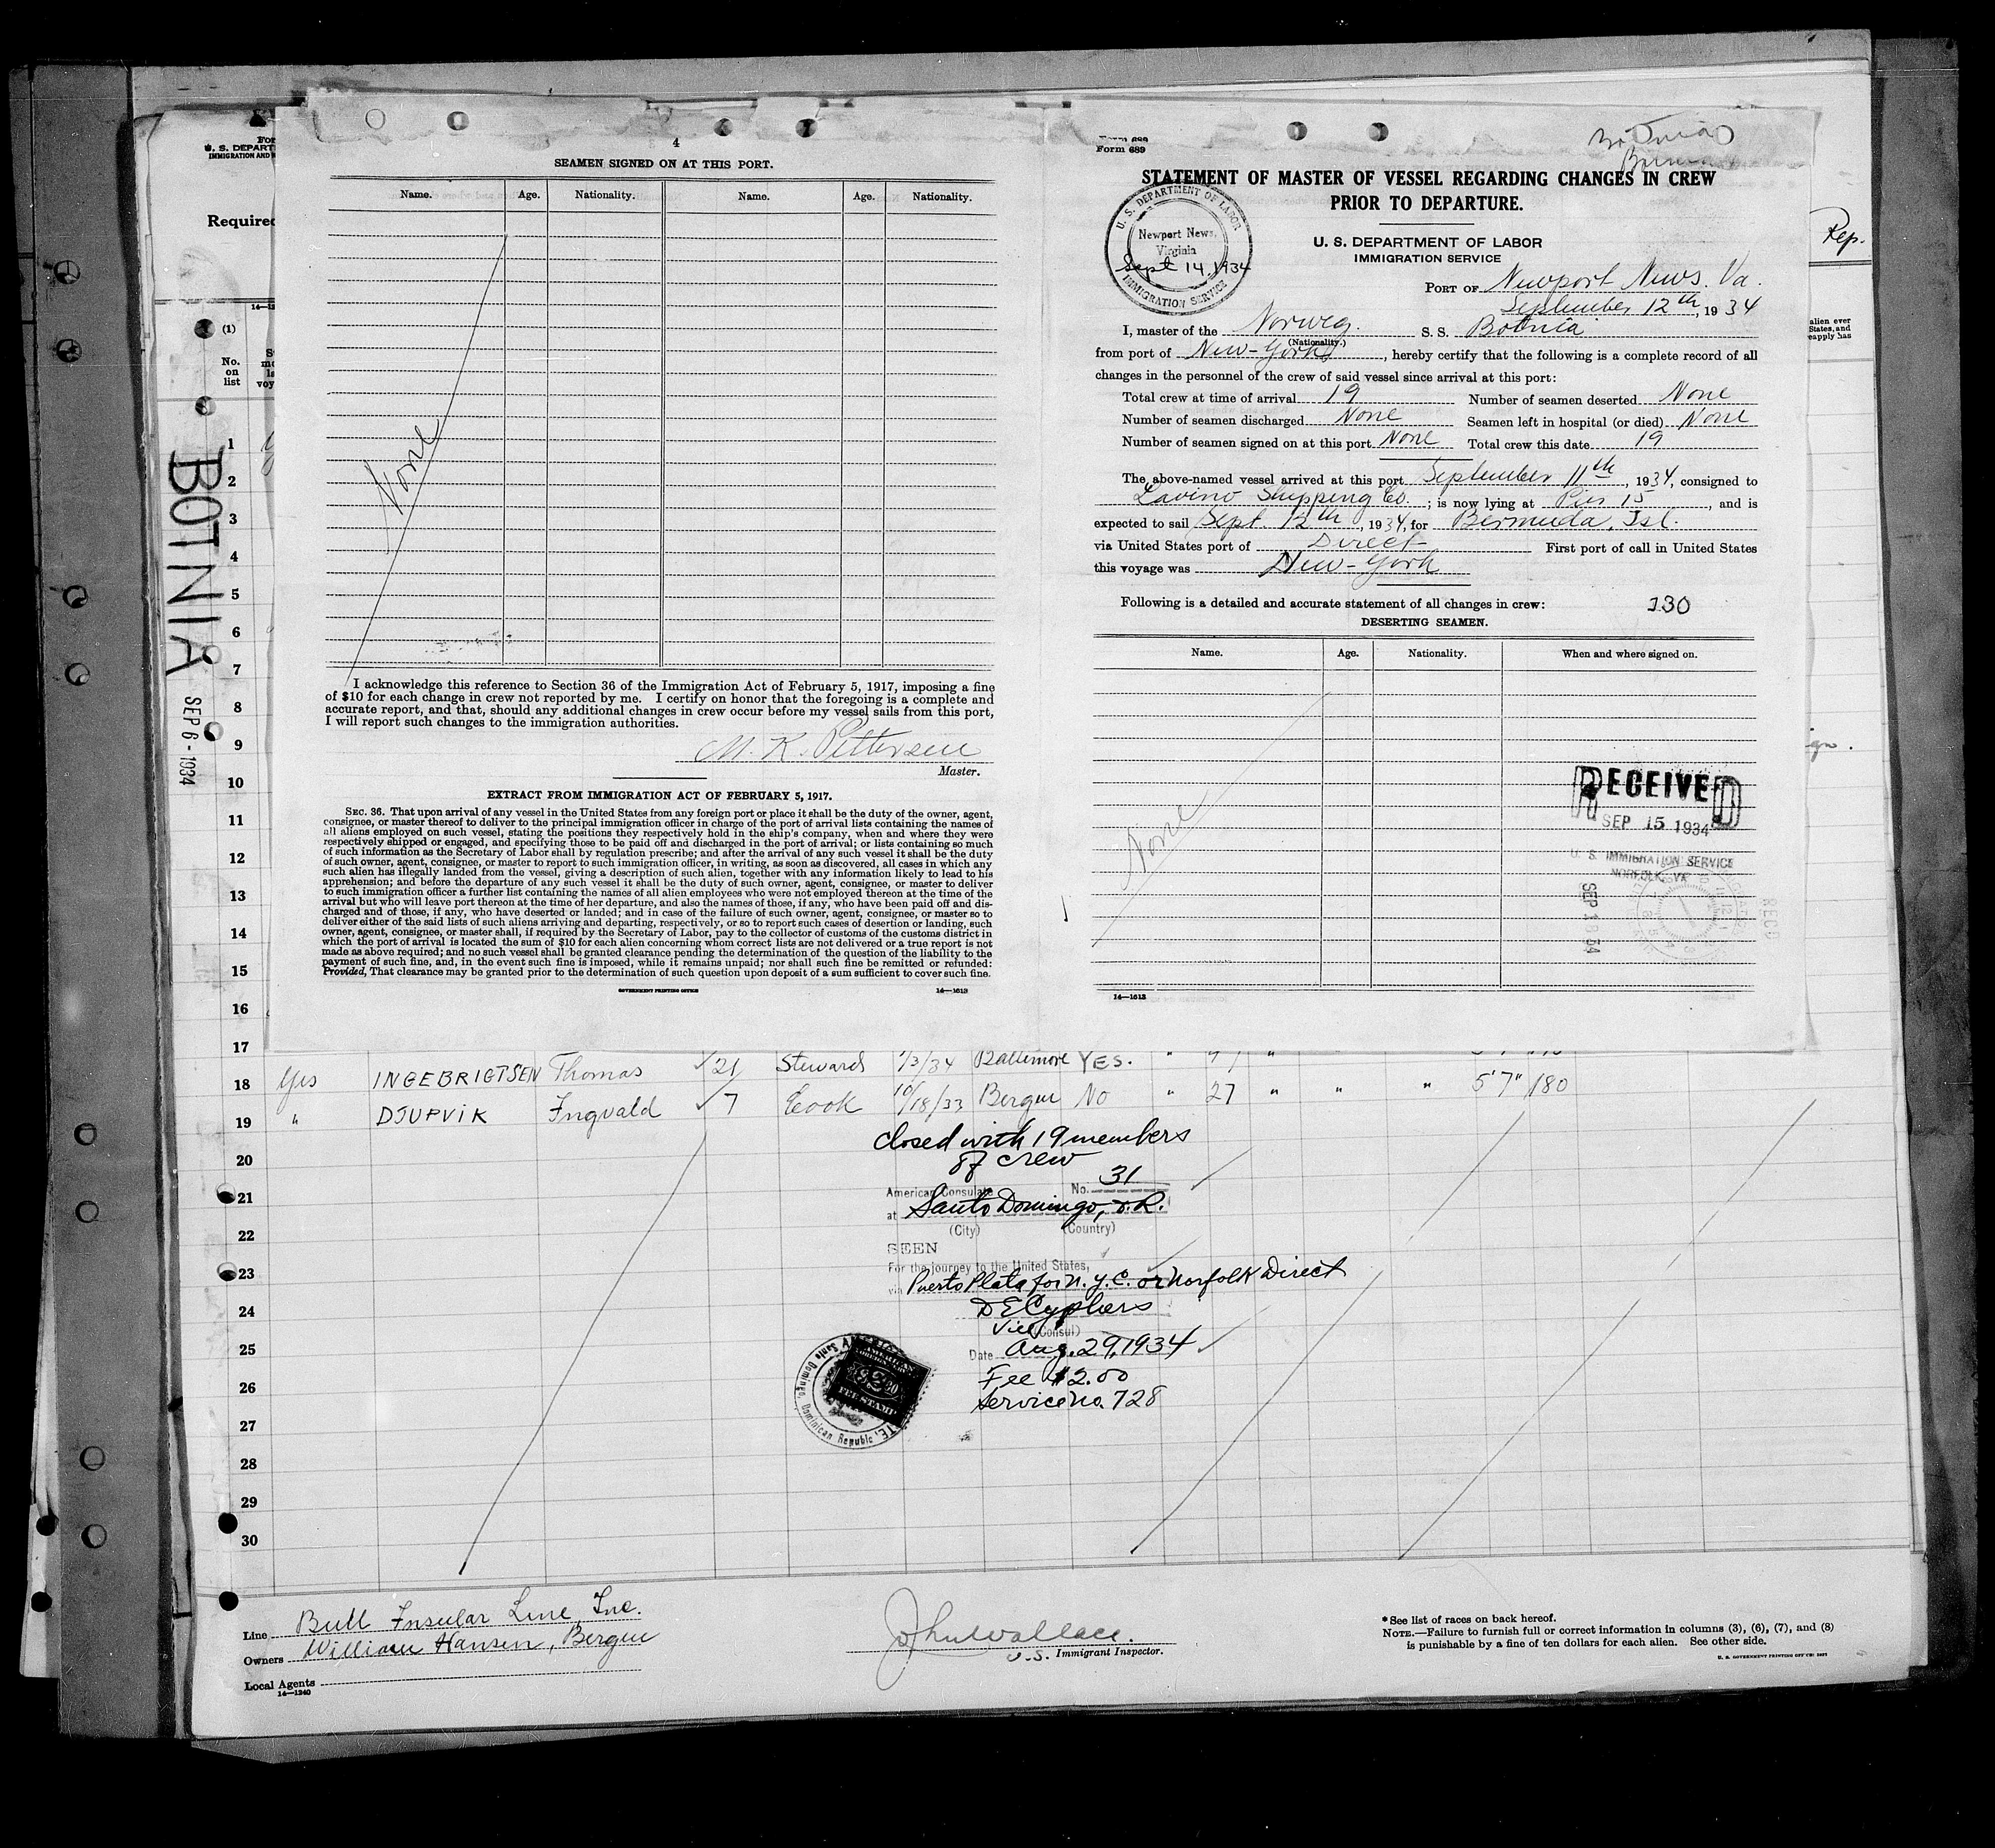 For
U. S. DEPART
IMMIGRATION AND
Required
14—12
(1)
No.
on
list
BOTNIA
SEP 6 - 1934
4
SEAMEN SIGNED ON AT THIS PORT.
Name. Age. Nationality. Name. Age. Nationality.
None
I acknowledge this reference to Section 36 of the Immigration Act of February 5, 1917, imposing a fine
of $10 for each change in crew not reported by me. I certify on honor that the foregoing is a complete and
accurate report, and that, should any additional changes in crew occur before my vessel sails from this port,
I will report such changes to the immigration authorities.
M. K. Pettersen
Master.
EXTRACT FROM IMMIGRATION ACT OF FEBRUARY 5, 1917.
SEC. 36. That upon arrival of any vessel in the United States from any foreign port or place it shall be the duty of the owner, agent,
consignee, or master thereof to deliver to the principal immigration officer in charge of the port of arrival lists containing the names of
all aliens employed on such vessel, stating the positions they respectively hold in the ship's company, when and where they were
respectively shipped or engaged, and specifying those to be paid off and discharged in the port of arrival; or lists containing so much
of such information as the Secretary of Labor shall by regulation prescribe; and after the arrival of any such vessel it shall be the duty
of such owner, agent, consignee, or master to report to such immigration officer, in writing, as soon as discovered, all cases in which any
such alien has illegally landed from the vessel, giving a description of such alien, together with any information likely to lead to his
apprehension; and before the departure of any such vessel it shall be the duty of such owner, agent, consignee, or master to deliver
to such immigration officer a further list containing the names of all alien employees who were not employed thereon at the time of the
arrival but who will leave port thereon at the time of her departure, and also the names of those, if any, who have been paid off and dis-
charged and of those, if any, who have deserted or landed; and in case of the failure of such owner, agent, consignee, or master so to
deliver either of the said lists of such aliens arriving and departing, respectively, or so to report such cases of desertion or landing, such
owner, agent, consignee, or master shall, if required by the Secretary of Labor, pay to the collector of customs of the customs district in
which the port of arrival is located the sum of $10 for each alien concerning whom correct lists are not delivered or a true report is not
made as above required; and no such vessel shall be granted clearance pending the determination of the question of the liability to the
payment of such fine, and, in the event such fine is imposed, while it remains unpaid; nor shall such fine be remitted or refunded:
Provided, That clearance may be granted prior to the determination of such question upon deposit of a sum sufficient to cover such fine.
GOVERNMENT PRINTING OFFICE 14—1613
Form 689
Botnia
STATEMENT OF MASTER OF VESSEL REGARDING CHANGES IN CREW
PRIOR TO DEPARTURE.
U. S. DEPARTMENT OF LABOR
IMMIGRATION SERVICE
U. S. DEPARTMENT OF LABOR
Newport News,
Virginia
Sept 14, 1934
IMMIGRATION SERVICE
PORT OF Newport News. Va.
September 12th, 1934
I, master of the Norweg. S. S. Botnia
(Nationality.)
from port of New-York, hereby certify that the following is a complete record of all
changes in the personnel of the crew of said vessel since arrival at this port:
Total crew at time of arrival 19 Number of seamen deserted None
Number of seamen discharged None Seamen left in hospital (or died) None
Number of seamen signed on at this port None Total crew this date 19
The above-named vessel arrived at this port September 11th, 1934, consigned to
Lavino Shipping Co. ; is now lying at Pier 15, and is
expected to sail Sept. 12th, 1934, for Bermuda, Isl.
via United States port of Direct First port of call in United States
this voyage was New-York
Following is a detailed and accurate statement of all changes in crew: 130
DESERTING SEAMEN.
Name. Age. Nationality. When and where signed on.
None
RECEIVED
SEP 15 1934
U. S. IMMIGRATION SERVICE
NORFOLK, VA
14—1613
Rep.
alien ever
States, and
reapply has
1
2
3
4
5
6
7
8
9
10
11
12
13
14
15
16
17
18 Yes INGEBRIGTSEN Thomas 21 Steward 1/3/34 Baltimore YES.
19 " DJUPVIK Ingvald 7 Cook 10/18/33 Bergen No " 27 " " " 5'7" 180
Closed with 19 members
of crew
20
American Consulate No. 31
21
at Santo Domingo, D.R.
22
(City) (Country)
SEEN
For the journey to the United States,
23
via Puerto Plata for N. Y. C. or Norfolk Direct
24
D E Cyphers
Vice (Consul)
25
Date Aug. 29, 1934
26
Fee $2.00
Service No. 728
AMERICAN
$2.00
FEE STAMP
Santo Domingo, Dominican Republic
27
28
29
30
Line Bull Insular Line, Inc.
Owners William Hansen, Bergen
Local Agents
14—1240
John Wallace.
U.S. Immigrant Inspector.
*See list of races on back hereof.
NOTE.—Failure to furnish full or correct information in columns (3), (6), (7), and (8)
is punishable by a fine of ten dollars for each alien. See other side.